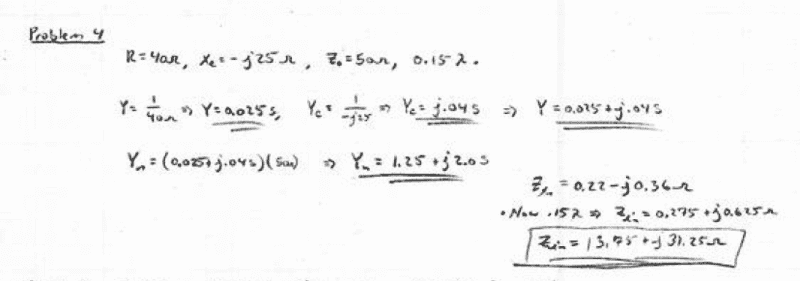 Problem 4
R=40Ω, Xc=-j25Ω, Z₀=50Ω, 0.15λ.
Y= 1/40Ω ⇒ Y=0.025s, Yc= 1/-j25 ⇒ Yc= j.04s ⇒ Y=0.025+j.04s
Yn=(0.025+j.04s)(50Ω) ⇒ Yn= 1.25+j2.0s
Zln=0.22-j0.36Ω
• Now .15λ ⇒ Zin=0.275+j0.625Ω
Zin=13.75+j31.25Ω